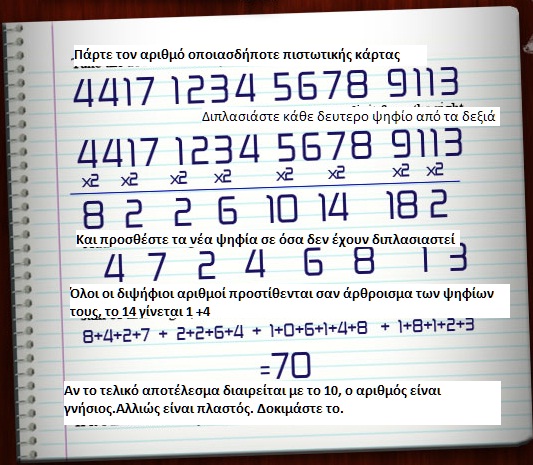 Πάρτε τον αριθμό οποιασδήποτε πιστωτικής κάρτας
4417 1234 5678 9113
Διπλασιάστε κάθε δευτερο ψηφίο από τα δεξιά
4417 1234 5678 9113
x2 x2 x2 x2 x2 x2 x2 x2
8 2 2 6 10 14 18 2
Και προσθέστε τα νέα ψηφία σε όσα δεν έχουν διπλασιαστεί
4 7 2 4 6 8 1 3
Όλοι οι διψήφιοι αριθμοί προστίθενται σαν άρθροισμα των ψηφίων
τους, το 14 γίνεται 1 +4
8+4+2+7 + 2+2+6+4 + 1+0+6+1+4+8 + 1+8+1+2+3
=70
Αν το τελικό αποτέλεσμα διαιρείται με το 10, ο αριθμός είναι
γνήσιος.Αλλιώς είναι πλαστός. Δοκιμάστε το.